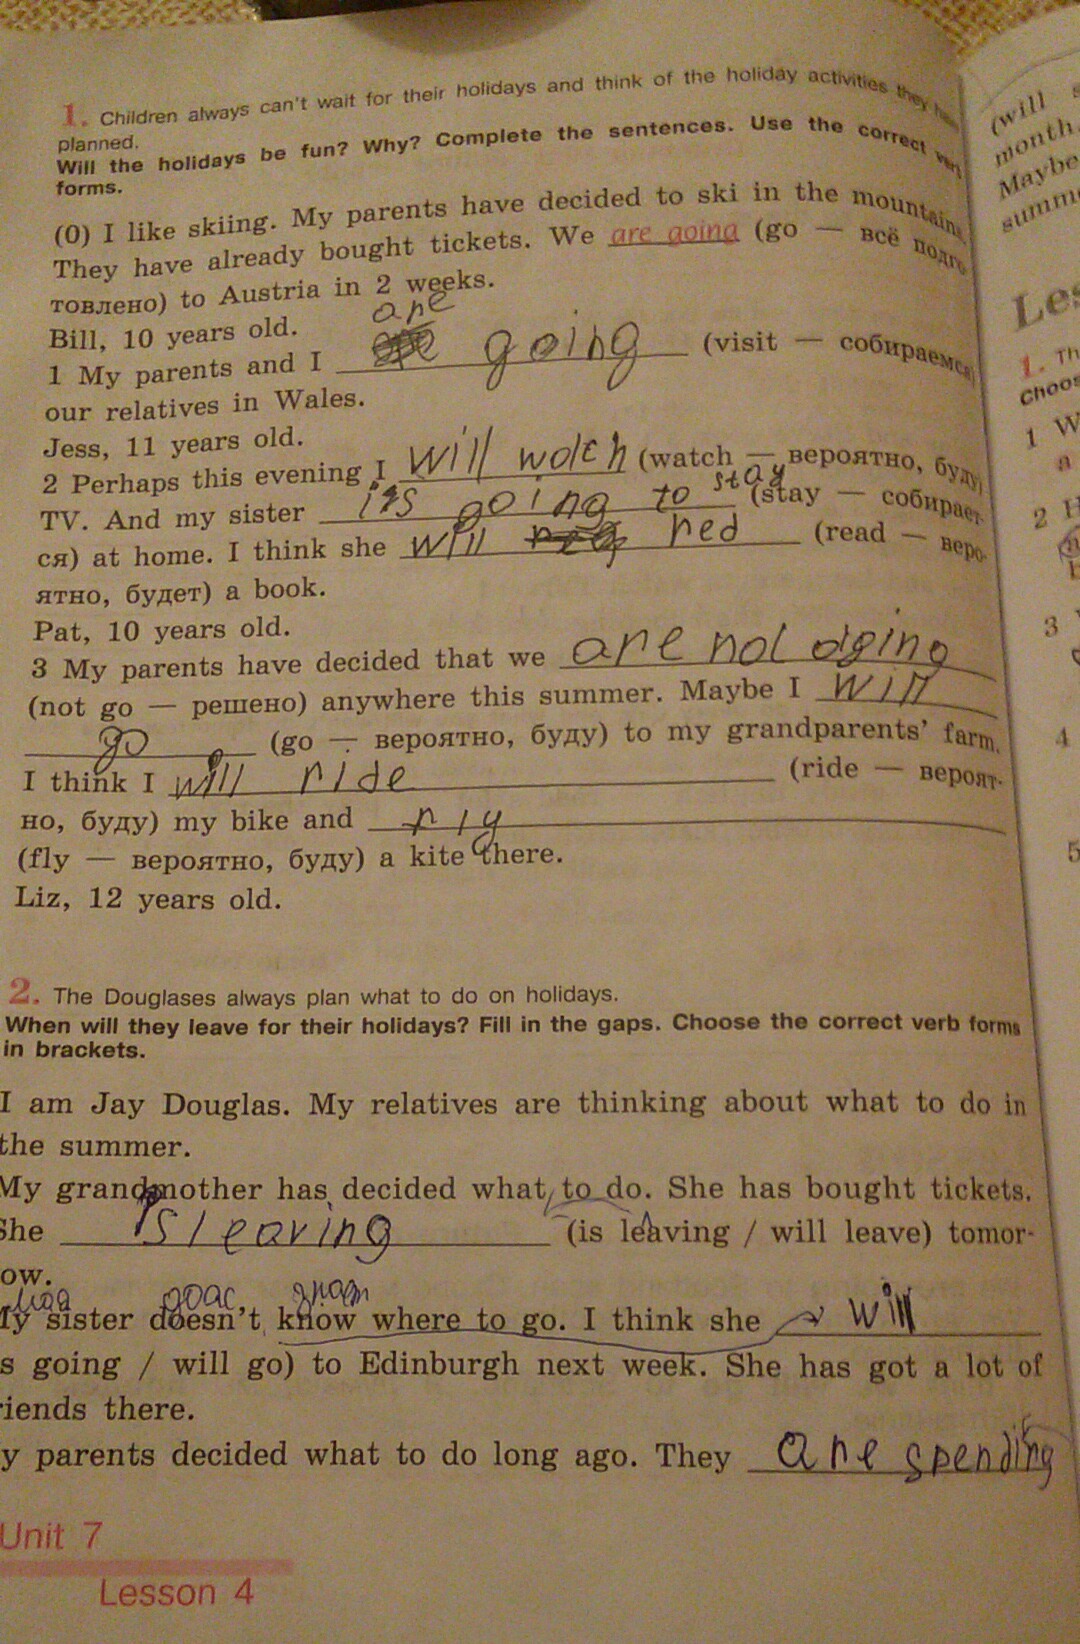 1. Children always can't wait for their holidays and think of the holiday activities they have
planned.
Will the holidays be fun? Why? Complete the sentences. Use the correct verb
forms.
(0) I like skiing. My parents have decided to ski in the mountains.
They have already bought tickets. We are going (go — всё подго-
товлено) to Austria in 2 weeks.
Bill, 10 years old.
are
1 My parents and I going (visit — собираемся)
our relatives in Wales.
Jess, 11 years old.
2 Perhaps this evening I will wotch (watch — вероятно, буду)
TV. And my sister is going to stay (stay — собирает-
ся) at home. I think she will red (read — веро-
ятно, будет) a book.
Pat, 10 years old.
3 My parents have decided that we are not going
(not go — решено) anywhere this summer. Maybe I will
go (go — вероятно, буду) to my grandparents' farm.
I think I will ride (ride — вероят-
но, буду) my bike and
(fly — вероятно, буду) a kite there.
Liz, 12 years old.
2. The Douglases always plan what to do on holidays.
When will they leave for their holidays? Fill in the gaps. Choose the correct verb forms
in brackets.
I am Jay Douglas. My relatives are thinking about what to do in
the summer.
My grandmother has decided what to do. She has bought tickets.
She is leaving (is leaving / will leave) tomor-
ow.
My sister doesn't know where to go. I think she will
s going / will go) to Edinburgh next week. She has got a lot of
riends there.
y parents decided what to do long ago. They are spending
Unit 7
Lesson 4
(will
month.
Maybe
summe
Les
1. Th
Choos
1 W
a
2 H
3
4
5